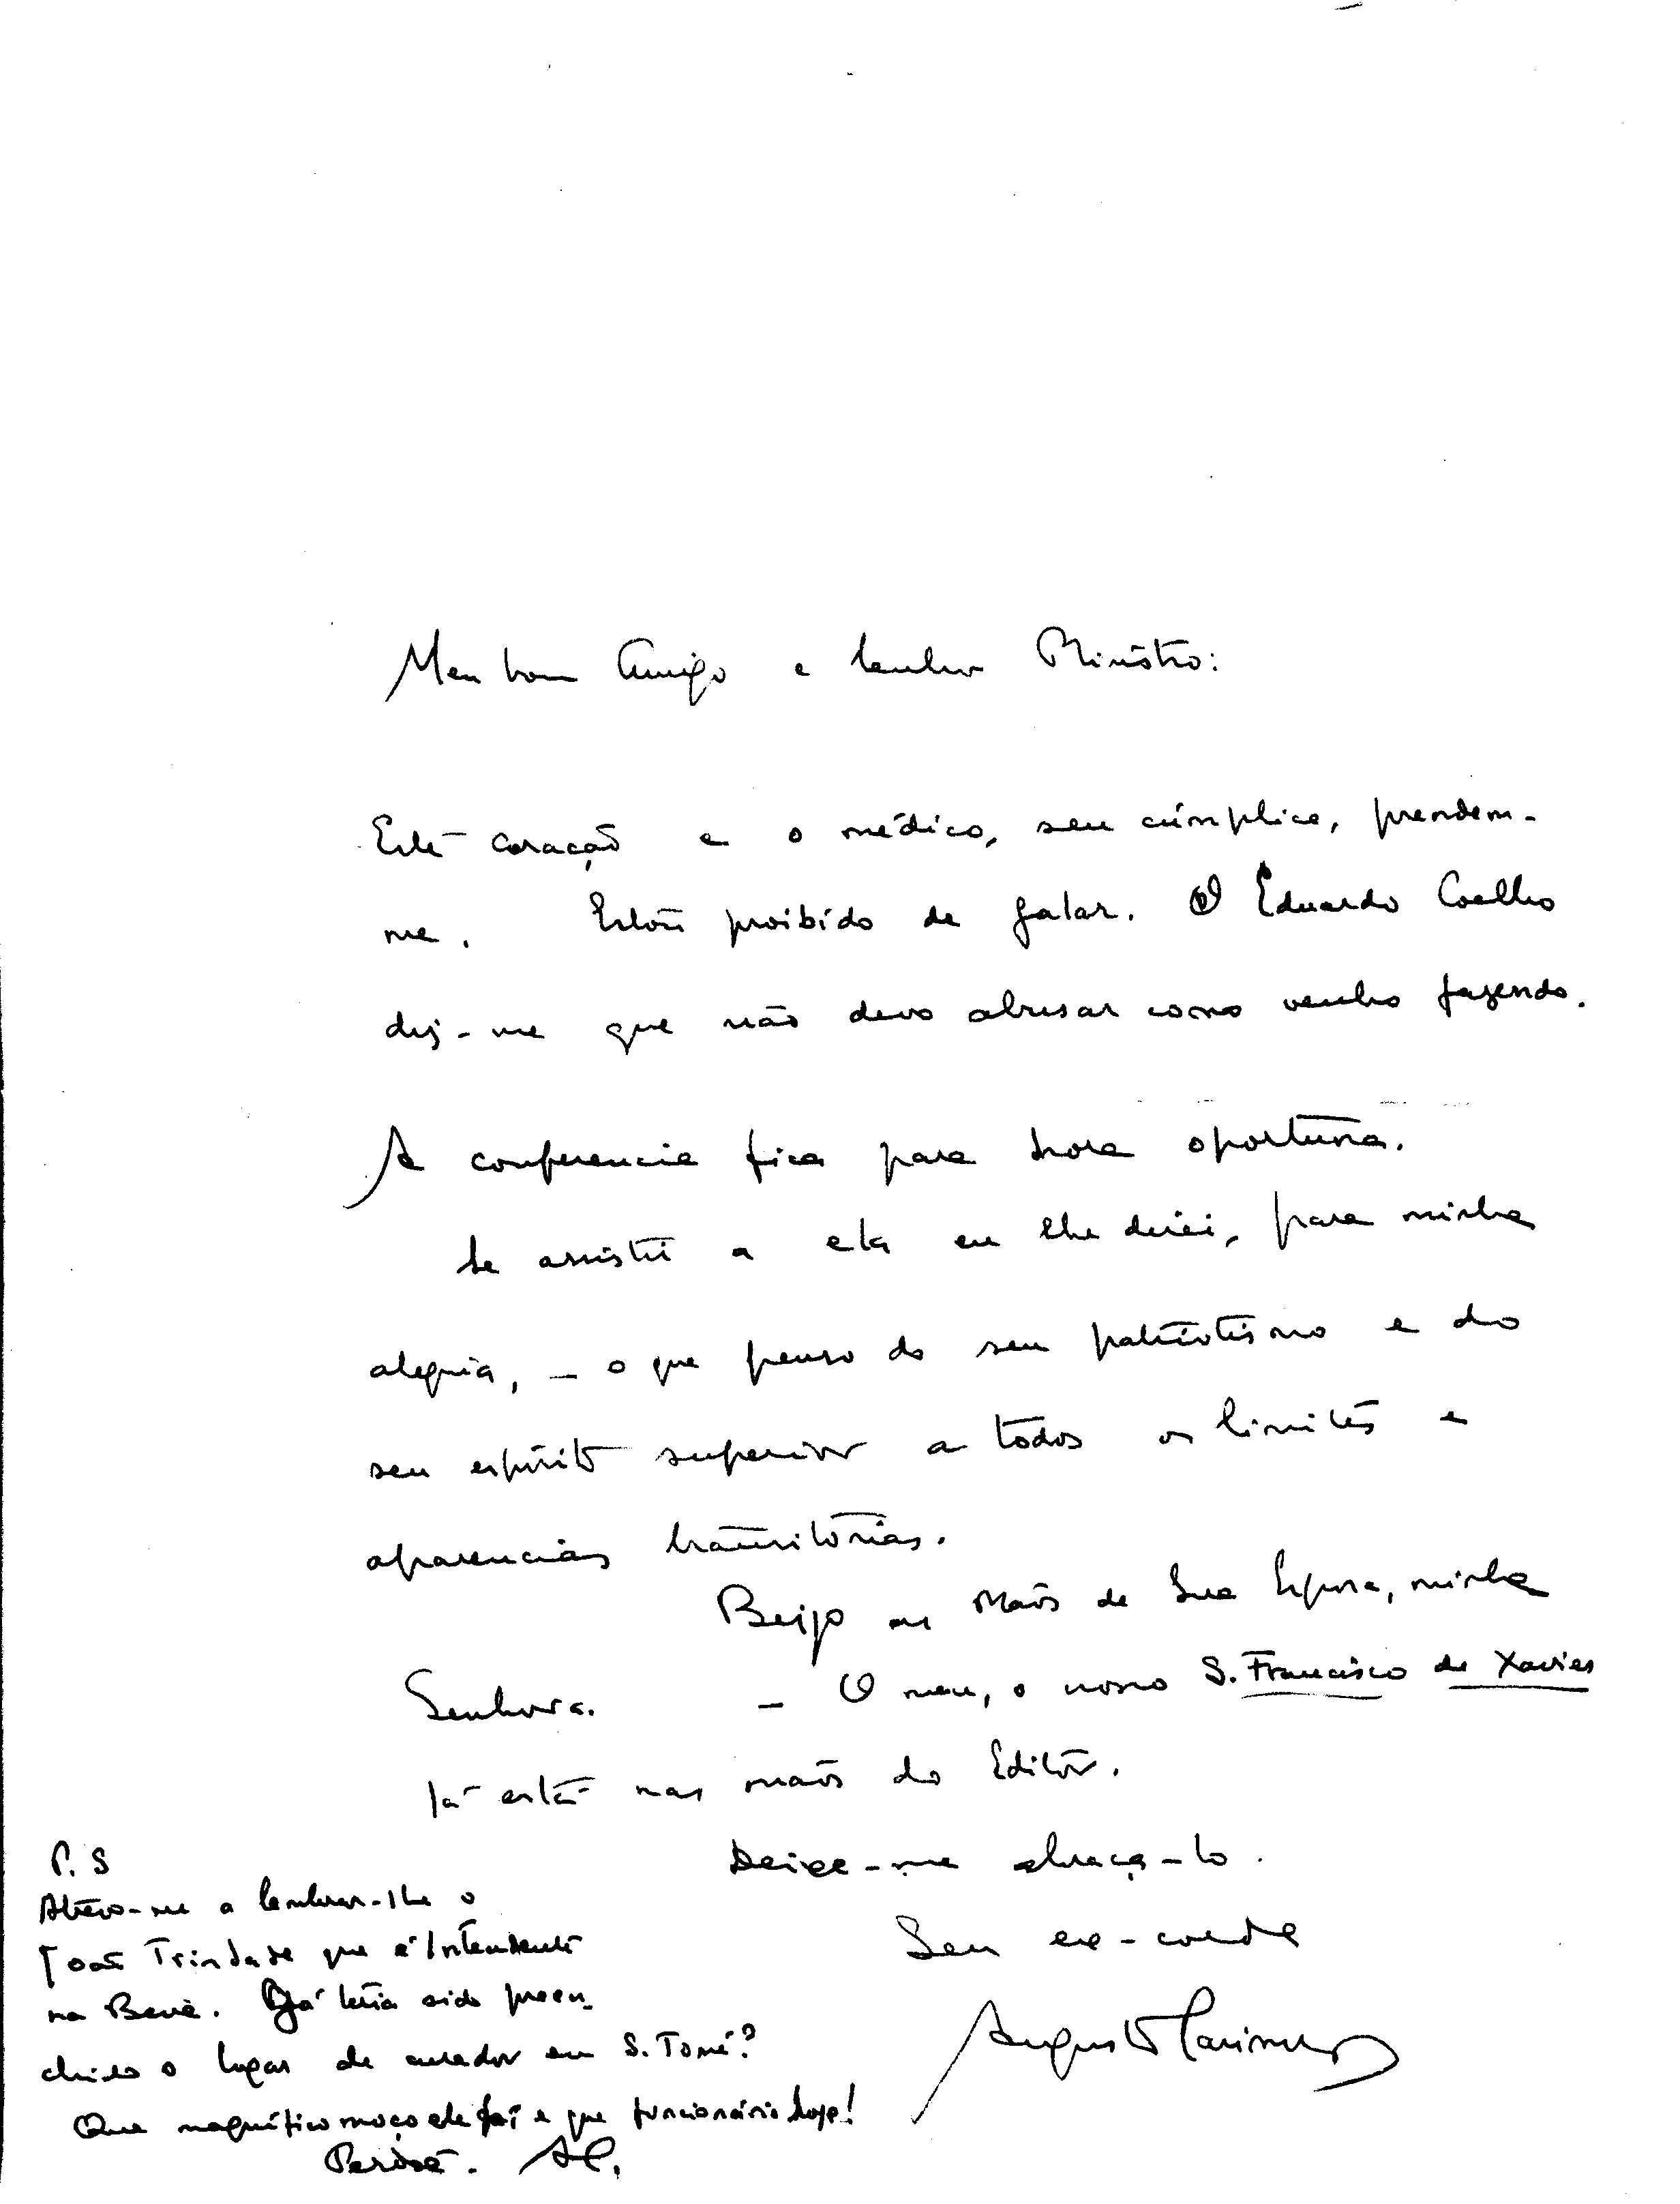 Meu bom Amigo e Senhor Ministro:
Este coração e o médico, seu cúmplice, prendem-
me. Estou proibido de falar. O Eduardo Coelho
diz-me que não devo abusar como venho fazendo.
A conferencia fica para hora oportuna.
Se assistir a ela eu lhe direi, para minha
alegria, - o que penso do seu patriotismo e do
seu espírito superior a todos os limites e
aparencias transitórias.
Beijo as mãos de Sua Esposa, minha
Senhora. - O meu, o nosso S. Francisco de Xavier
já está nas mãos do Editor.
Deixe-me abraça-lo.
Seu ex-corde
Augusto Casimiro
P. S
Atrevo-me a lembrar-lhe o
João Trindade que é Intendente
na Beira. Já teria sido preen-
chido o lugar de curador em S. Tomé?
Que magnífico moço ele foi e que funcionário hoje!
Perdoe. AC.